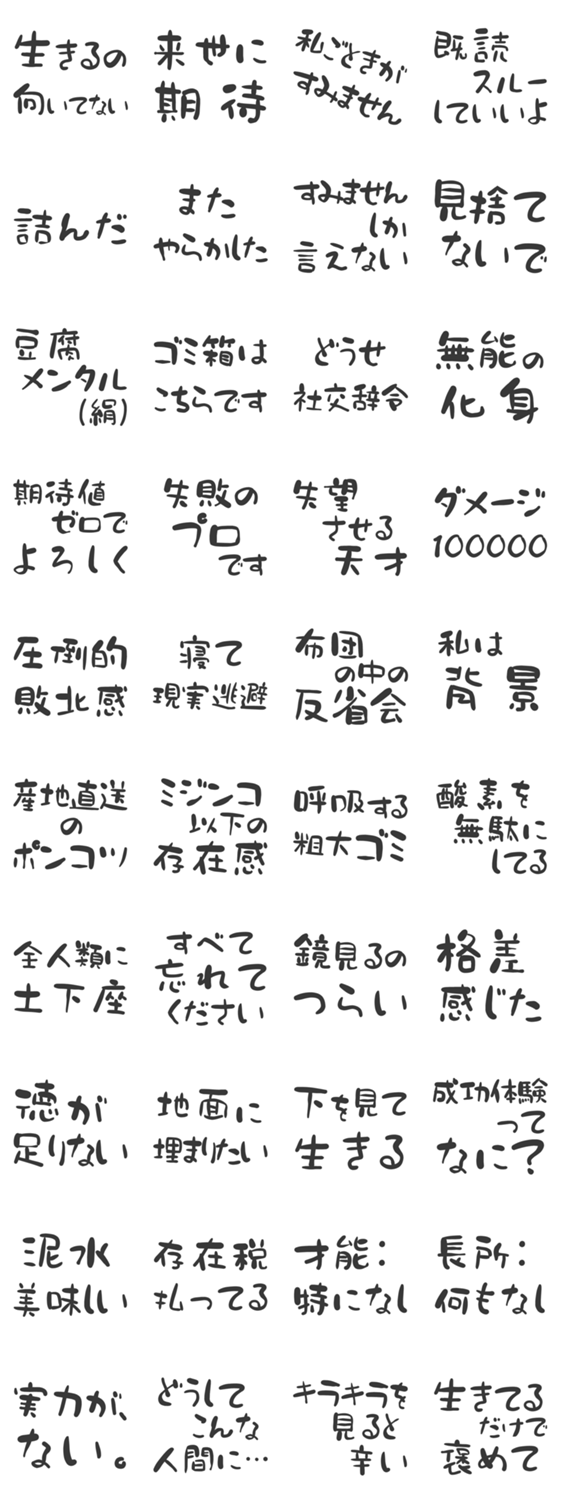 生きるの
向いてない
来世に
期待
私ごときが
すみません
既読
スルー
していいよ
詰んだ
また
やらかした
すみません
しか
言えない
見捨て
ないで
豆腐
メンタル
(絹)
ゴミ箱は
こちらです
どうせ
社交辞令
無能の
化身
期待値
ゼロで
よろしく
失敗の
プロ
です
失望
させる
天才
ダメージ
100000
圧倒的
敗北感
寝て
現実逃避
布団
の中の
反省会
私は
背景
産地直送
の
ポンコツ
ミジンコ
以下の
存在感
呼吸する
粗大ゴミ
酸素を
無駄に
してる
全人類に
土下座
すべて
忘れて
ください
鏡見るの
つらい
格差
感じた
徳が
足りない
地面に
埋まりたい
下を見て
生きる
成功体験
って
なに?
泥水
美味しい
存在税
払ってる
才能:
特になし
長所:
何もなし
実力が、
ない。
どうして
こんな
人間に…
キラキラを
見ると
辛い
生きてる
だけで
褒めて